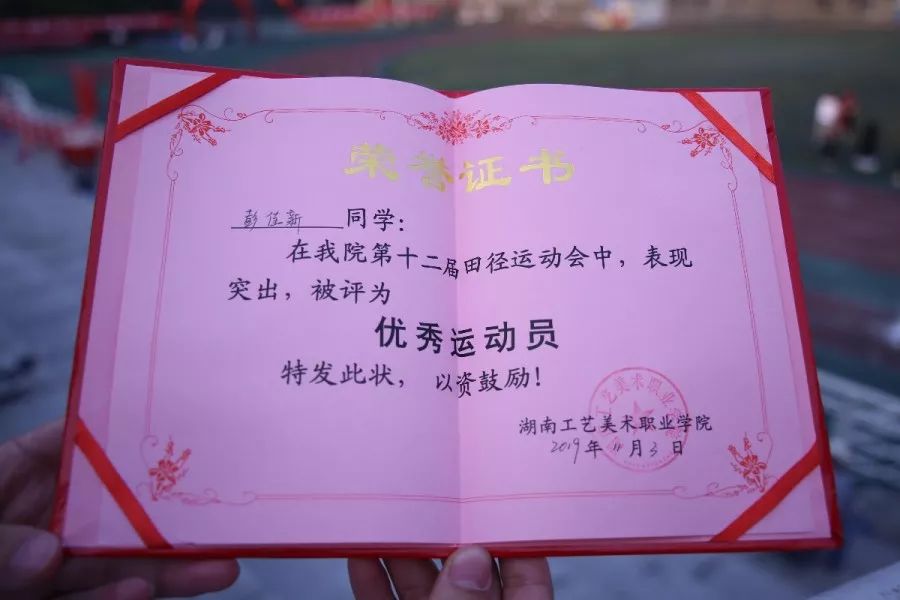 荣誉证书
彭佳新同学:
在我院第十二届田径运动会中，表现
突出，被评为
优秀运动员
特发此状，以资鼓励!
湖南工艺美术职业学院
2019年11月3日